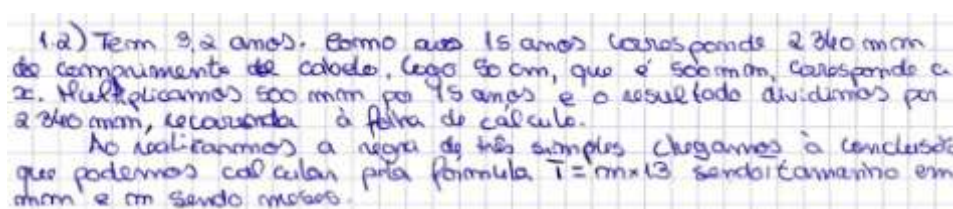 1.2) Tem 3,2 anos. Como aos 15 anos corresponde 2 340 mm
de comprimento de cabelo, logo 50 cm, que é 500 mm, corresponde a
x. Multiplicamos 500 mm por 15 anos e o resultado dividimos por
2 340 mm, recorrendo à folha de calculo.
Ao realizarmos a regra de três simples chegamos à conclusão
que podemos calcular pela formula T = m×13 sendo tamanho em
mm e m sendo meses.